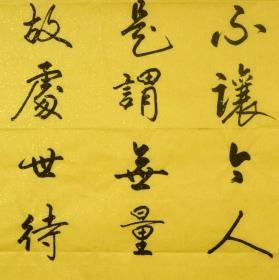 不讓今人
是謂無量
故處世待